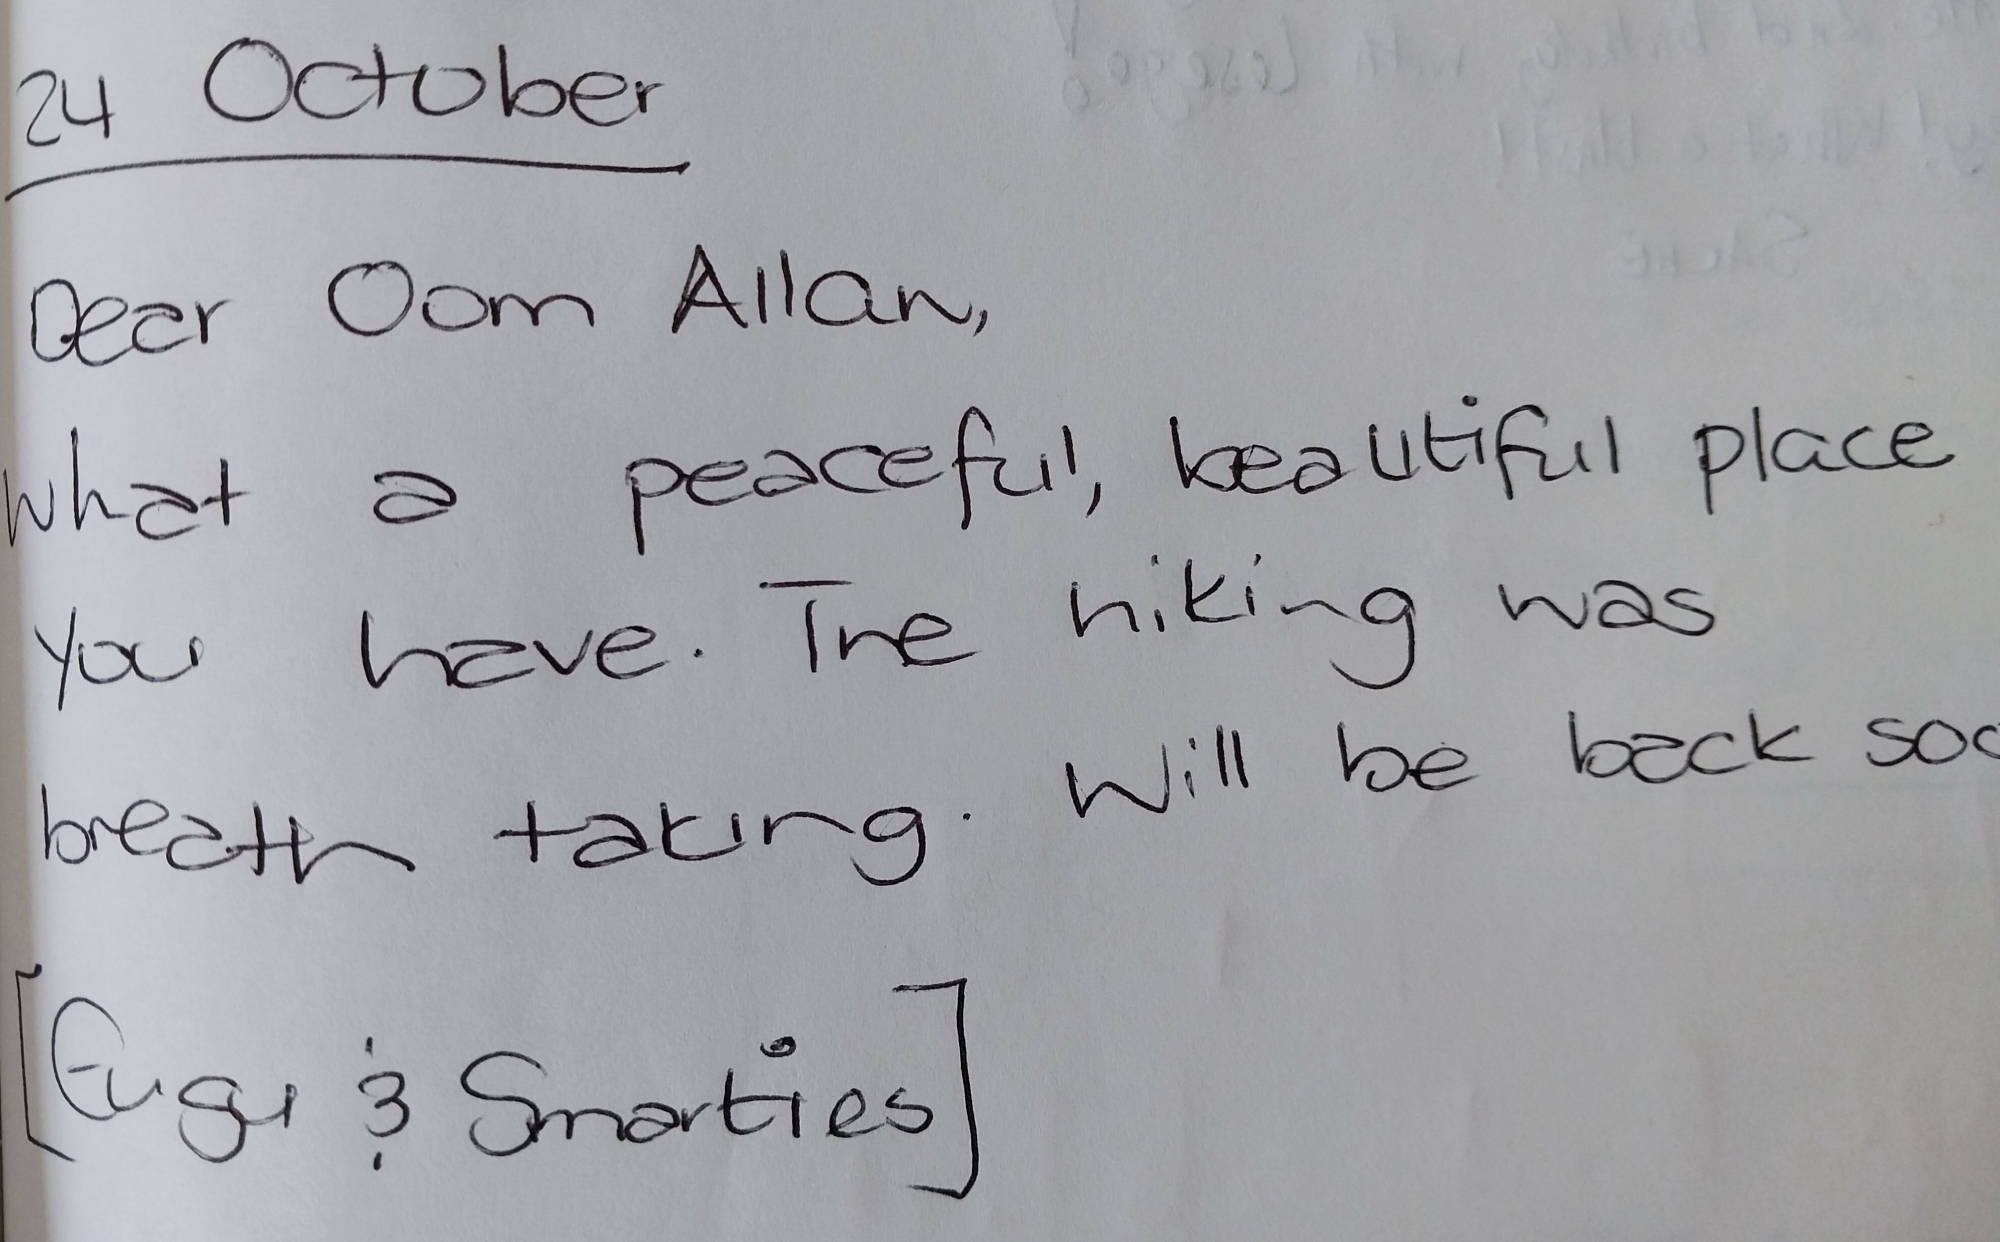 24 October
Dear Oom Allan,
What a peaceful, beautiful place
you have. The hiking was
breath taking. Will be back soo
& Smarties]